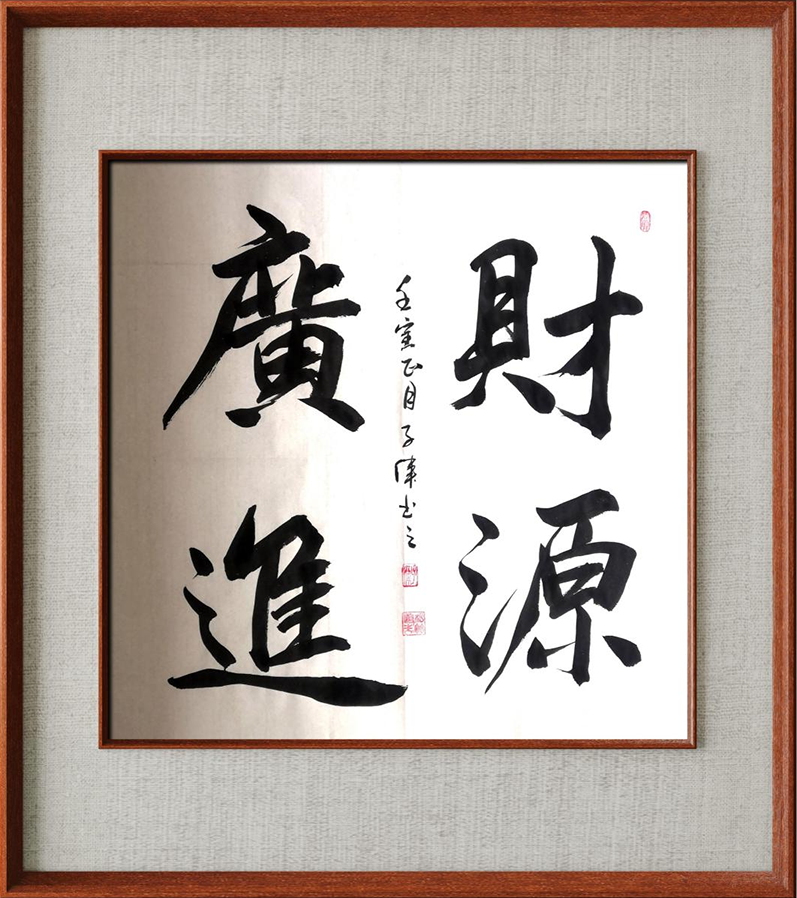 財源
廣進
壬寅正月子津书之